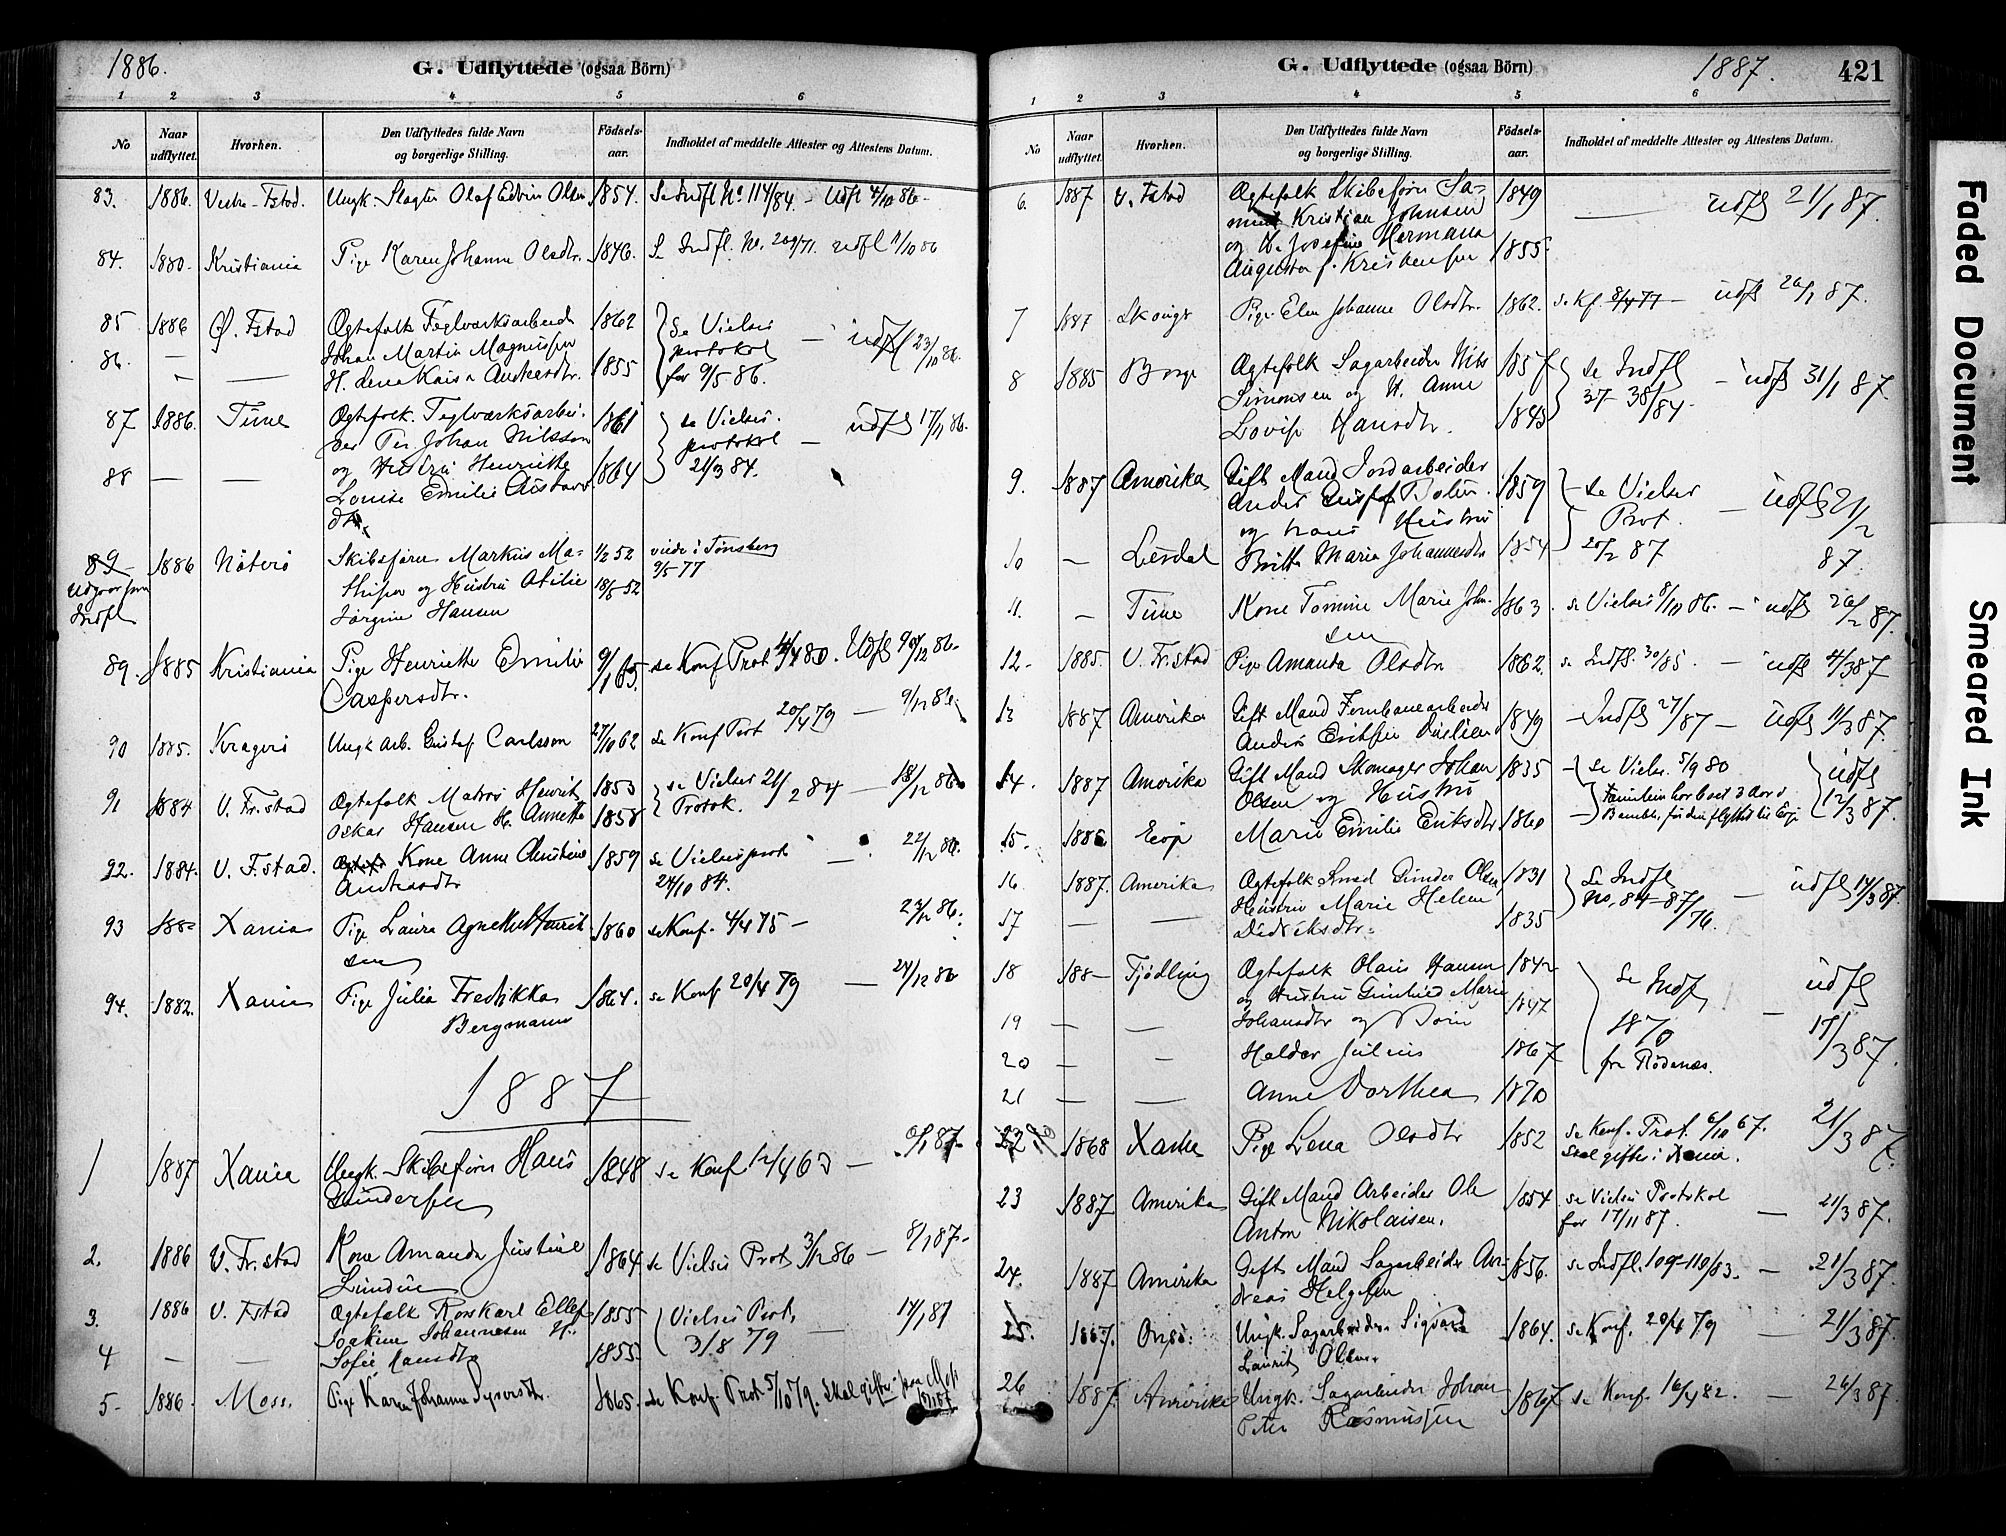 1886.
G. Udflyttede (ogsaa Börn)
1 2 3 4 5 6
No
Naar udflyttet.
Hvorhen.
Den Udflyttedes fulde Navn og borgerlige Stilling.
Födsels-aar.
Indholdet af meddelte Attester og Attestens Datum.
83. 1886. Vestre-Fstad. Ungk. Slagter Olaf Edvin Olsen 1854. Se Indfl No 114/84. - Udfl 4/10 86.
84. 1880. Kristiania Pige Karen Johanne Olsdtr. 1846. Se Indfl. No. 209/71. udfl 11/10 86
85 1886 Ø. Fstad Ægtefolk Teglværksarbeid 1862 Se Vielses
86. — Johan Martin Magnussen protokol — udfl 23/10 86.
— — H. Lena Kaisa Andersdtr. 1855 for 9/5 86.
87 1886. Tune Ægtefolk. Teglværksarbei- 1861 se Vielses-
der Per Johan Nilsson protokol — udfl 17/11 86.
88 — — og Hustru Henriette 1864 21/3 84.
Louise Emilie Gustavs
dtr.
89 1886 Nøterø Skibsfører Markus Ma- 1/2 52 viede i Tønsberg
Udgaar fra thisen og Hustru Otilie 18/5 52 9/5 77
Indfl Jørgine Hansen
89. 1885 Kristiania Pige Henriette Emilie 9/1 65. se Konf Prot 4/4 80. Udfl 9/12 86.
Caspersdtr.
90 1885. Kragerø Ungk arb. Gustaf Carlsson 27/10 62 se Konf Prot 20/4 79 — 9/12 86.
91 1884 V. Fr.stad Ægtefolk Matros Henrik 1853 se Vielses 21/2 84 — 18/12 86
Oskar Hansen H. Annette 1858 Protok.
92. 1884. V. F.stad. Kone Anne Christine 1859 se Vielsesprot — 22/12 86.
Andersdtr 24/10 84.
93 188- Xania Pige Laura Agnethe Henrik- 1860 se Konf. 4/4 75 — 23/12 86.
sen
94. 1882. Xania Pige Julia Fredrikka 1864. se Konf 20/4 79 — 24/12 86
Bergmann
1887
1 1887 Xania Ungk. Skibsfører Hans 1848 se Konf 12/4 63 — 8/1 87.
Gundersen
2. 1886 V. Fr.stad Kone Amanda Justine 1864 se Vielses Prot 3/12 86 — 8/1 87.
Lundin
3. 1886 V. Fstad Ægtefolk Roskarl Ellef 1855 Vielses Prot. 14/1 87
Joakim Johannesen H.
4 — — Sofie Hansdtr 1855. 3/8 79 —
5. 1886. Moss. Pige Karen Johanne Syversdtr. 1865. se Konf. Prot 5/10 79. Skal giftes paa Moss
G. Udflyttede (ogsaa Börn)
1887.
421
1 2 3 4 5 6
No
Naar udflyttet.
Hvorhen.
Den Udflyttedes fulde Navn og borgerlige Stilling.
Födsels-aar.
Indholdet af meddelte Attester og Attestens Datum.
6. 1887 V. Fstad Ægtefolk Skibsfører Sa- 1849 — udfl 21/1 87.
muel Kristian Johnsen
og H. Josefine Hermana
Augusta f. Kristensen 1855
7 1887 Skonge Pige Elen Johanne Olsdtr. 1862. se Kf. 8/4 77 — udfl 26/1 87.
8 1885 Borge Ægtefolk Sagarbeider Nils 1857 se Indfl — udfl 31/1 87.
Simonsen og H. Anne 37-38/84.
Lovise Hansdtr. 1843
9. 1887 Amerika Gift Mand Jordarbeider 1859 se Vielses — udfl 21/2
Prot.
og hans Hustru
10 — Lerdal Britta Maria Johannesdtr 1854 20/2 87 87.
11. — Tune Kone Tomine Marie John- 1863. se Vielses 8/10 86. — udfl 26/2 87.
sen
12. 1885. V. Fr.stad Pige Amanda Olsdtr 1862. se Indfl. 30/85. — udfl 4/3 87
13 1887 Amerika Gift Mand Jernbanearbeider 1849 Indfl 27/87 — Udfl 11/3 87.
14. 1887 Amerika Gift Mand Skomager Johan 1835 se Vielse. 5/9 80 udfl
Olsen og Hustru Familien har boet 3 Aar i 12/3 87.
15. 1886 Marie Emilie Eriksdtr 1860 Bamble, før den flyttet til
16 1887. Amerika Ægtefolk Smed Gunder Olsen 1831 Se Indfl — udfl 14/3 87.
Hustru Marie Helene No. 84-87/76.
17 — — Didriksdtr. 1835
18 188- Tjødling Ægtefolk Olaus Hansen 1842 Se Indfl udfl
og Hustru Gunhild Marie 1847
19 — — Johansdtr og Børn 1870 — 17/3 87.
20 — — Haldor Julius 1867 fra Rødenæs.
21 — — Anne Dorthea 1870
22 1868 Xania Pige Lena Olsdtr 1852 se Konf. Prot. 6/10 67. 21/3 87.
Skal giftes i Xania.
23 1887 Amerika Gift Mand Arbeider Ole 1854 se Vielses Protokol
Anton Nikolaisen. for 17/11 87. — 21/3 87.
24. 1887 Amerika Gift Mand Sagarbeider An- 1856. se Indfl. 109-110/83. — 21/3 87.
dreas Helgesen
25. 1887. Onsø. Ungk. Sagarbeider Sigvard 1864. se Konf. 20/4 79 — 21/3 87.
Laurits Olsen.
26 1887. Amerika Ungk. Sagarbeider Johan 1867 se Konf. 16/4 82. — 26/3 87.
Peter Rasmussen
Faded Document
Smeared Ink